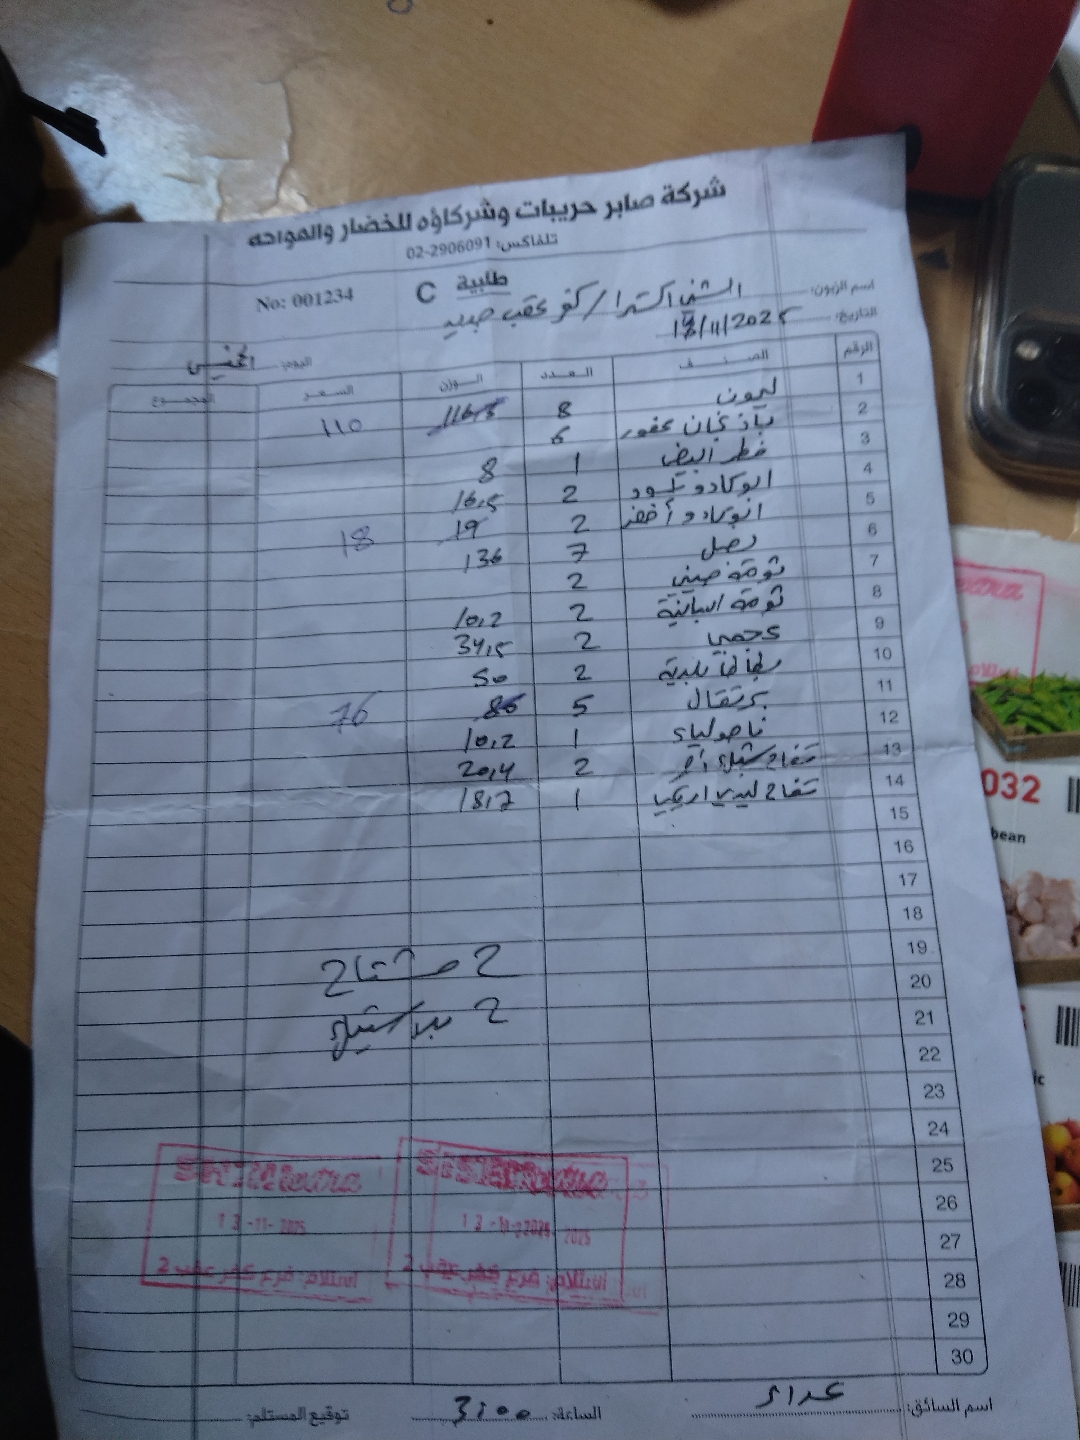 شركة صابر حريبات وشركاؤه للخضار والفواكه
تلفاكس: 02-2906091
طلبية C
No: 001234
اسم الزبون: الشني اكسترا / كفر عقب
التاريخ: 13/11/2025
اليوم: الخميس
الرقم الصنف العدد الوزن السعر المجموع
1 ليمون 8 116,5 110
2 باذنجان عفور 6
3 فطر ابيض 1 8
4 افوكادو 2 16,5
5 افوكادو أخضر 2 19 18
6 بصل 7 136
7 ثومة صيني 2
8 ثومة اسبانية 2 10,2
9 عجمي 2 34,5
10 بطاطا بلدية 2 50
11 برتقال 5 86 76
12 فاصولياء 1 10,2
13 تفاح 2 20,4
14 تفاح ليدي امريكي 1 18,7
15
16
17
18
19
20
21
22
23
24
25
26
27
28
29
30
2
2
Shini Extra
13-11-2025
استلام: فرع كفر عقب 2
13-11-2025
استلام: فرع كفر عقب 2
اسم السائق:
الساعة: 3:00
توقيع المستلم:
032
bean